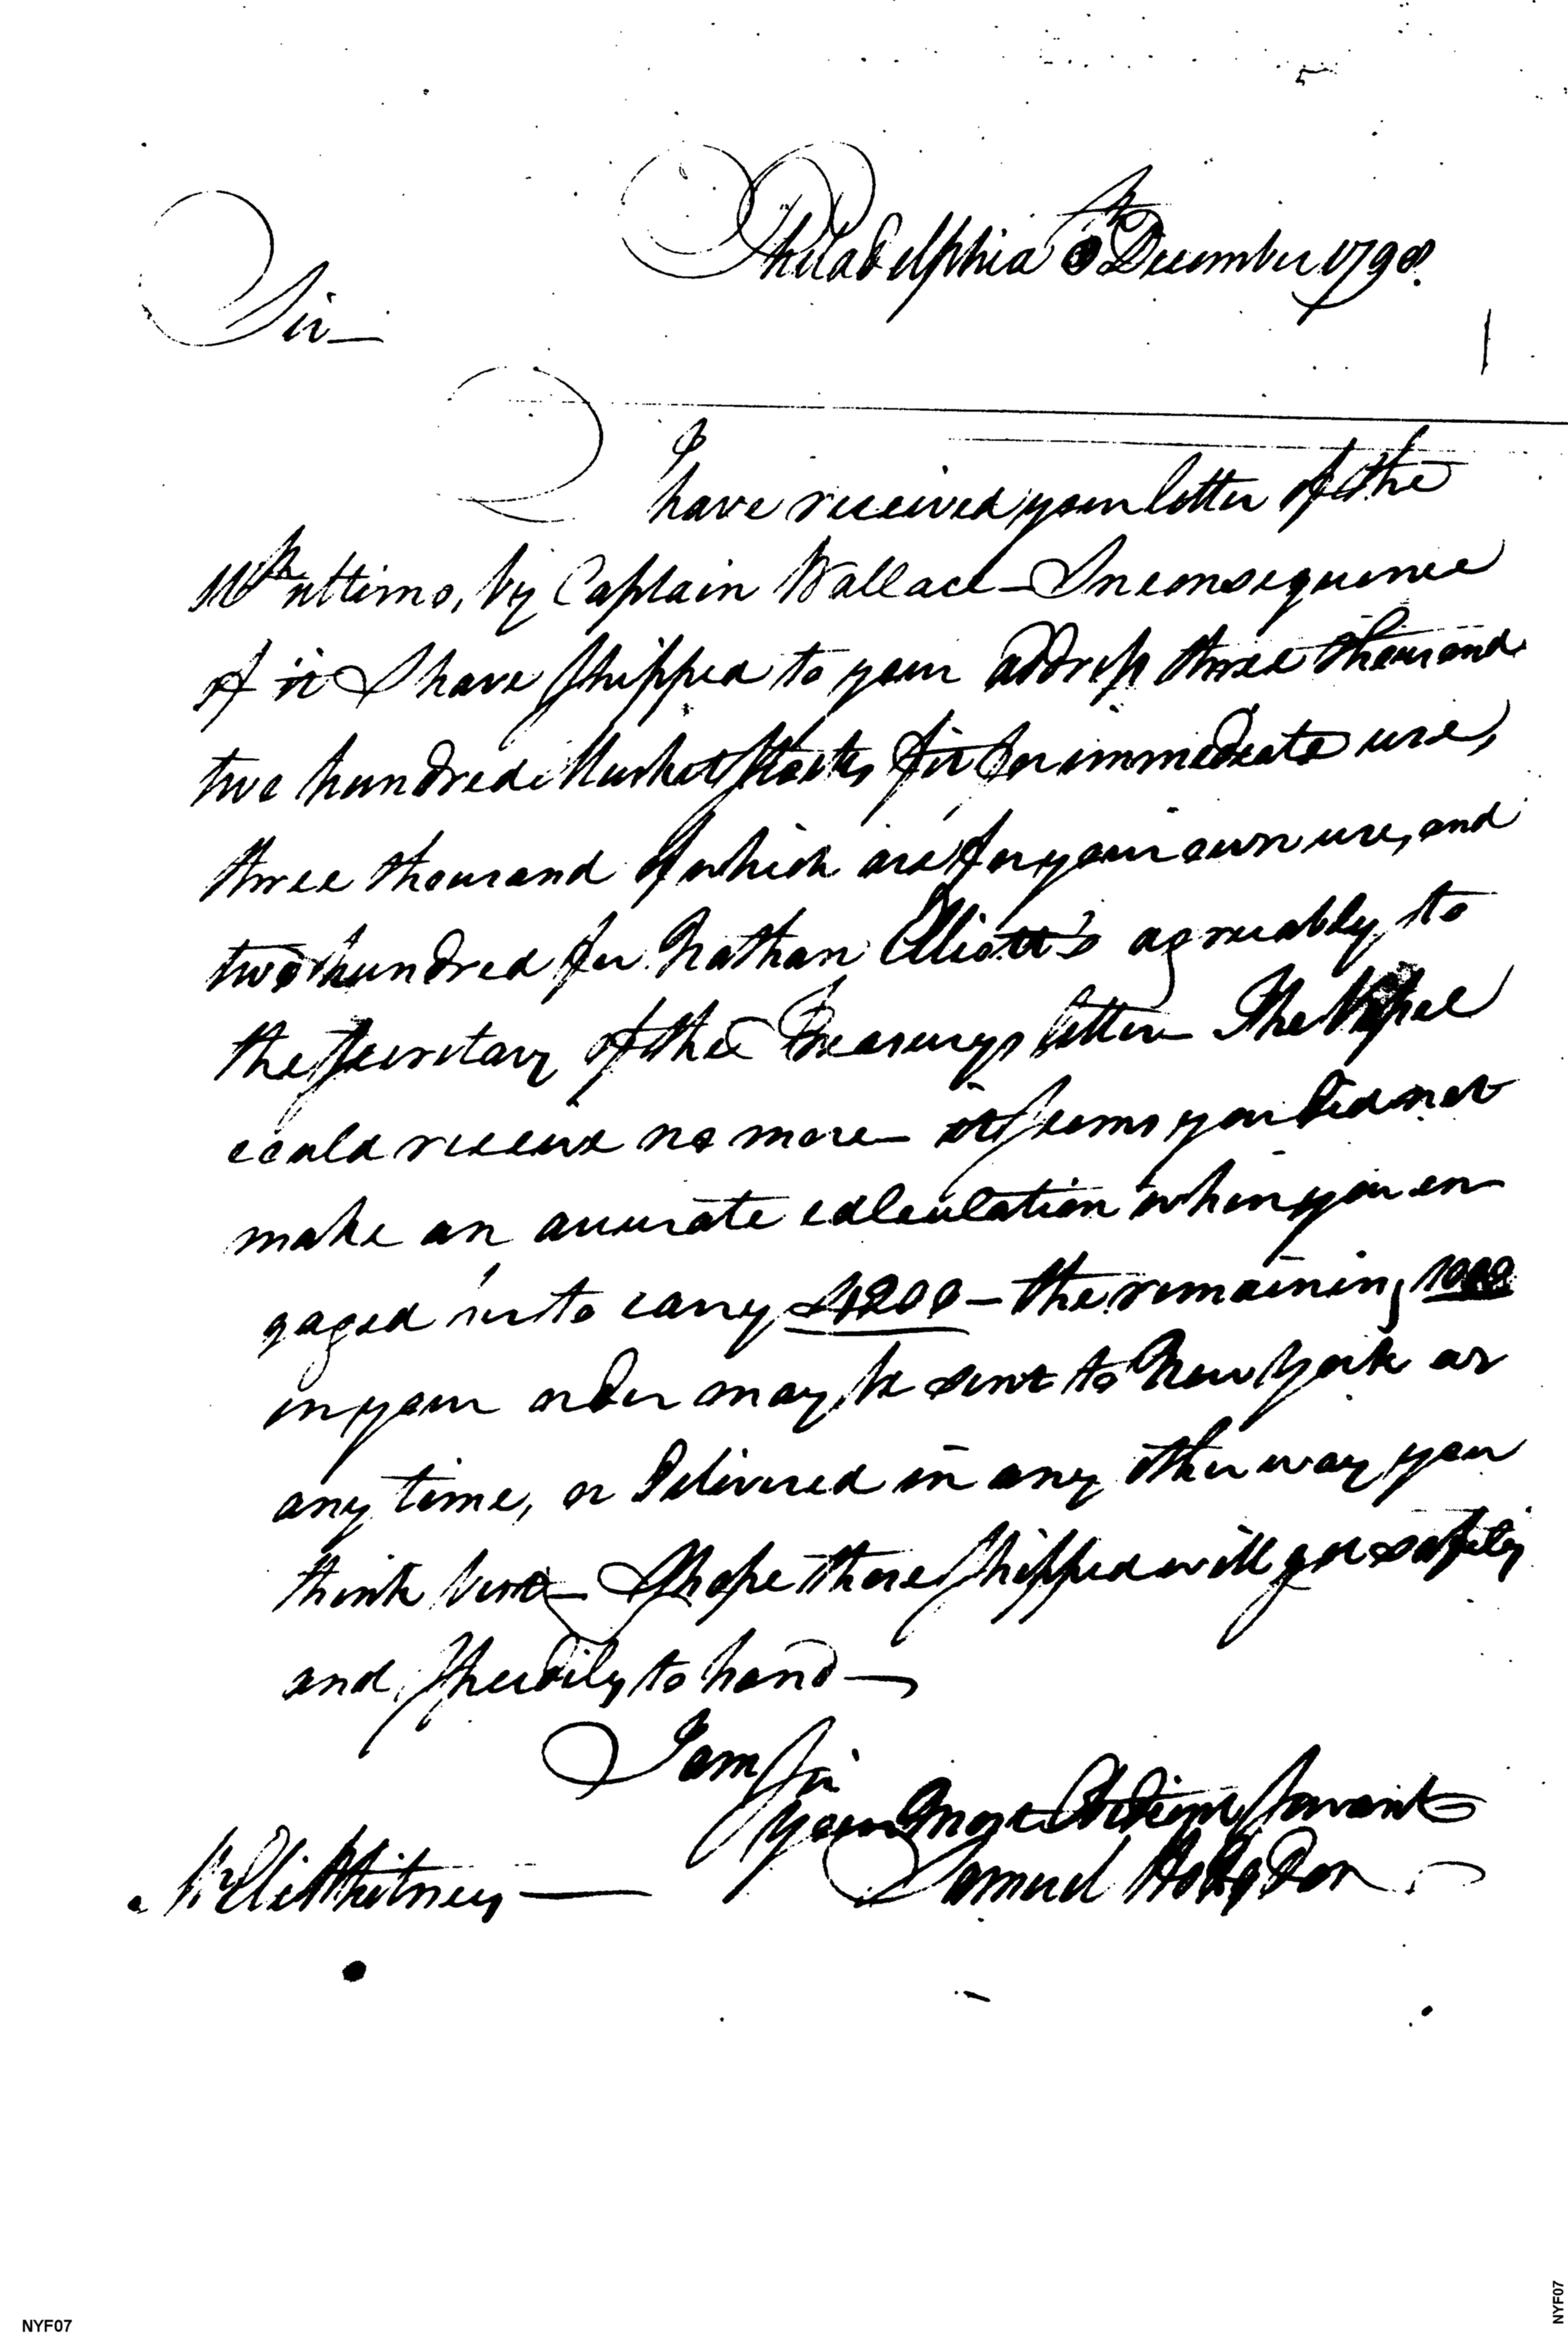 Philadelphia 8th December 1798.
Sir —
I
have received your letter of the
ultimo, by Captain Wallace — In consequence
of it I have shipped to your address three thousand
two hundred Musket Stocks fit for immediate use,
three thousand of which are for your own use, and
two hundred for Nathan Elliott's agreeably to
the Secretary of the Treasurys letter — The Vessel
could receive no more — it seems you did not
make an accurate calculation when you en
gaged her to carry 4200 — the remaining 1000
in your order may be sent to New York at
any time, or delivered in any other way you
think best — I hope those shipped will get safely
and speedily to hand —
I am Sir
your Most Obedient Servant
Samuel Hodgdon
Mr Eli Whitney —
NYF07
NYF07